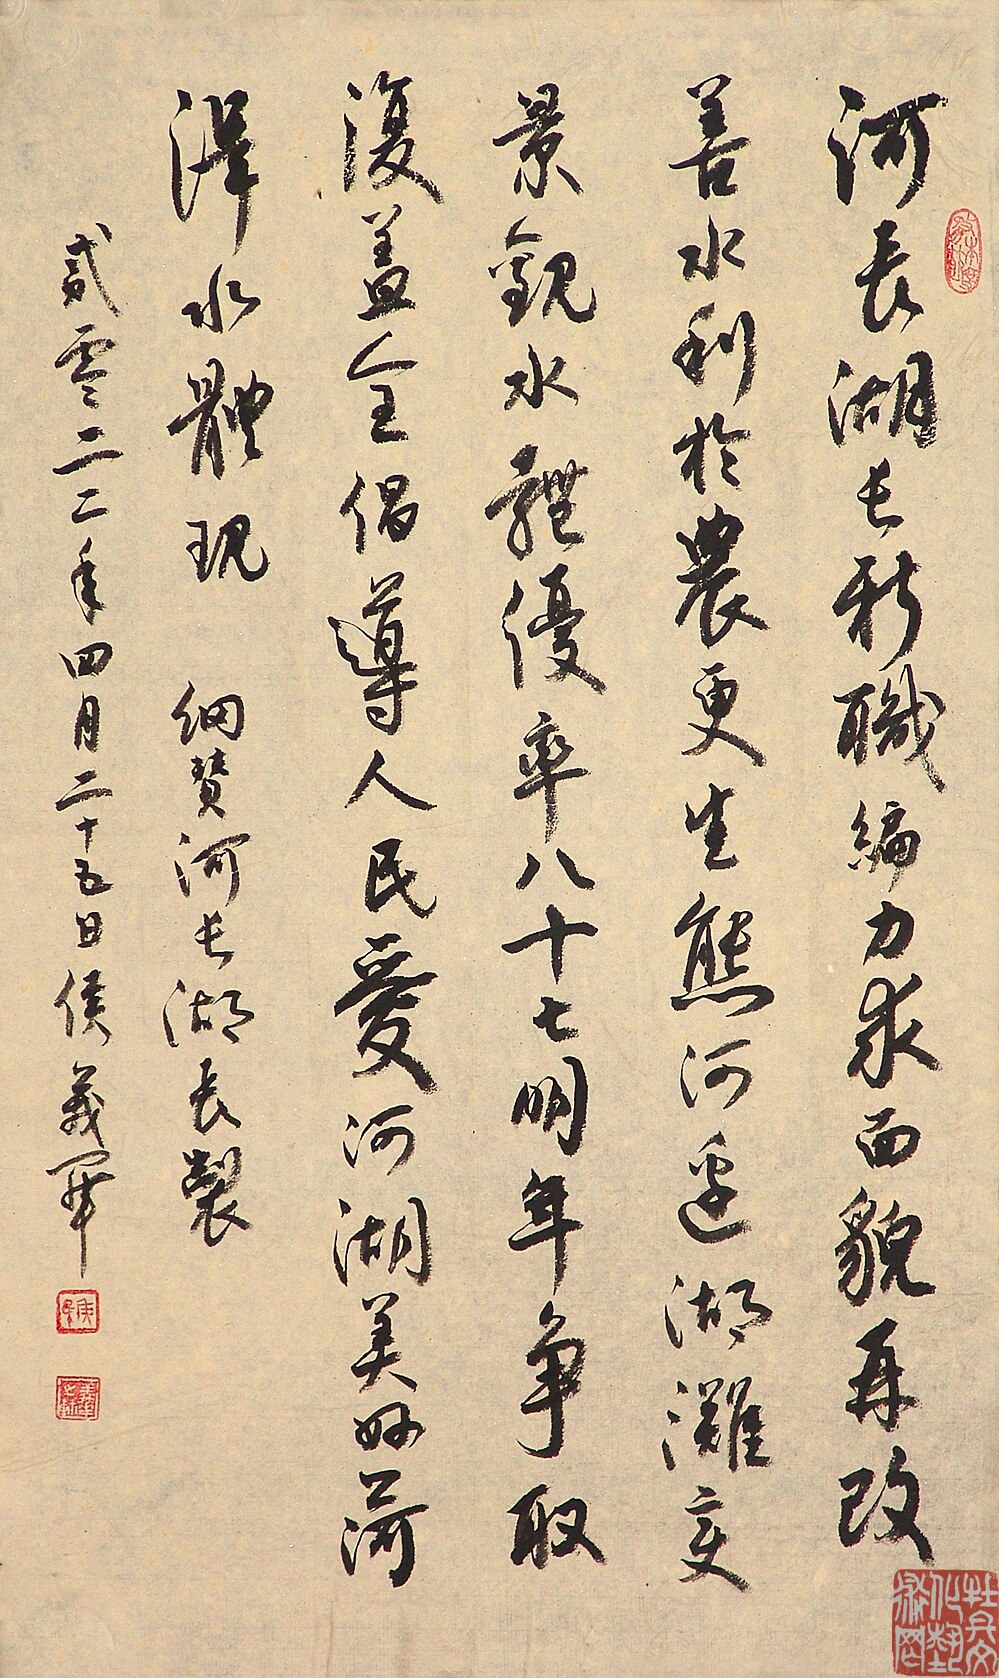 河長湖长新職編力求面貌再改
善水利於農更生態河邊湖灘变
景觀水體優率八十七明年争取
復盖全倡導人民愛河湖美好菏
澤水體現 细赞河长湖長製
贰零二二年四月二十五日侯義军